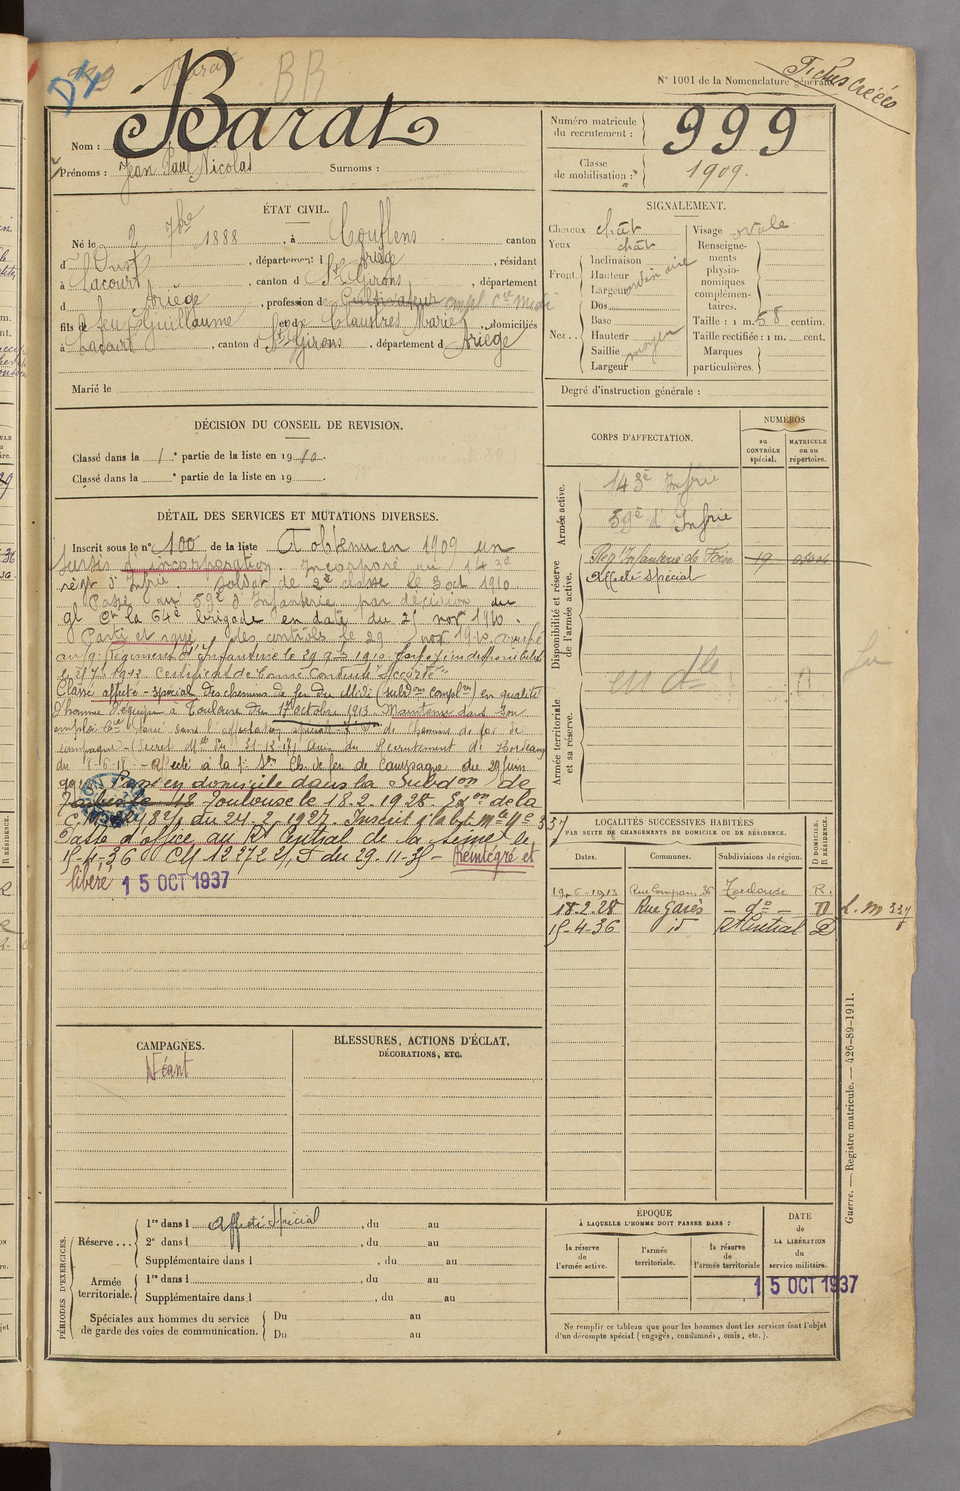 BB
Fiches créées
N° 1001 de la Nomenclature générale.
Nom : Barat
Prénoms : Jean Paul Nicolas Surnoms :
Numéro matricule du recrutement : 999
Classe de mobilisation : 1909.
ÉTAT CIVIL.
Né le 2 7bre 1888, à Couflens canton
d'Oust, département d Ariège, résidant
à Lacourt, canton de St Girons, département
d Ariège, profession de Cultivateur empl. Cie Midi
fils de feu Guillaume et de Claustres Marie, domiciliés
à Lacourt, canton d St Girons, département d Ariège
Marié le
SIGNALEMENT.
Cheveux chât
Yeux chât
Front Inclinaison
Hauteur ordinaire
Largeur
Nez Dos
Base
Hauteur moyen
Saillie
Largeur
Visage ovale
Renseignements physionomiques complémentaires.
Taille : 1 m. 58 centim.
Taille rectifiée : 1 m. cent.
Marques particulières.
Degré d'instruction générale :
DÉCISION DU CONSEIL DE REVISION.
Classé dans la 1e partie de la liste en 1910.
Classé dans la e partie de la liste en 19 .
CORPS D'AFFECTATION.
NUMÉROS
au CONTRÔLE spécial.
MATRICULE ou au répertoire.
Armée active.
143e Infrie
59e d'Infrie
Disponibilité et réserve de l'armée active.
Regt Infanterie de Foix 19
Affecté spécial
Armée territoriale et sa réserve.
en dle
DÉTAIL DES SERVICES ET MUTATIONS DIVERSES.
Inscrit sous le n° 100 de la liste A obtenu en 1909 un
sursis d'incorporation. Incorporé au 143e
régt d'Infrie. Soldat de 2e classe le 3 oct 1910
Passé au 59e d'Infanterie par décision du
gl Ct la 64e brigade en date du 25 nov 1910.
Parti et rayé des contrôles le 29 nov 1910. arrivé
au 59e Régiment d'Infanterie le 29 9bre 1910. Passé dans la disponibilité
le 1912 Certificat de bonne Conduite "accordé"
Classé affecté-spécial des chemins de fer du Midi (subdon complre) en qualité
d'homme d'équipe à Toulouse du 17 octobre 1913. Maintenu dans son
emploi
campagne du 31-12-17, Avis du Recrutement de Bordeaux
du 18-6-18 - affecté à la 1e Son Ch. de fer de Campagne du 29 juin
Passé en domicile dans la Subdon de
Toulouse le 18.2.1928. Exon de la
C.M. du 24.2.1927. Inscrit
Passé d'office au Rt Central de la Seine le
15-4-36 CM 12272 du 29-11-35 - Réintégré et
libéré 15 OCT 1937
LOCALITÉS SUCCESSIVES HABITÉES
PAR SUITE DE CHANGEMENTS DE DOMICILE OU DE RÉSIDENCE.
Dates. Communes. Subdivisions de région. D DOMICILE. R RÉSIDENCE.
19-6-1913 Rue Compans 36 Toulouse R.
18-2-28 Rue Garès - do - D L. m 337
15-4-36 id Rt Central D
CAMPAGNES.
Néant
BLESSURES, ACTIONS D'ÉCLAT,
DÉCORATIONS, ETC.
PÉRIODES D'EXERCICES.
Réserve ... 1re dans l Affecté Spécial, du au
2e dans l , du au
Supplémentaire dans l , du au
Armée territoriale. 1re dans l , du au
Supplémentaire dans l , du au
Spéciales aux hommes du service de garde des voies de communication. Du au
Du au
ÉPOQUE
À LAQUELLE L'HOMME DOIT PASSER DANS :
la réserve de l'armée active.
l'armée territoriale.
la réserve de l'armée territoriale
DATE de LA LIBÉRATION du service militaire.
15 OCT 1937
Ne remplir ce tableau que pour les hommes dont les services font l'objet
d'un décompte spécial (engagés, condamnés, omis, etc.).
Guerre. — Registre matricule. — 426-89-1911.